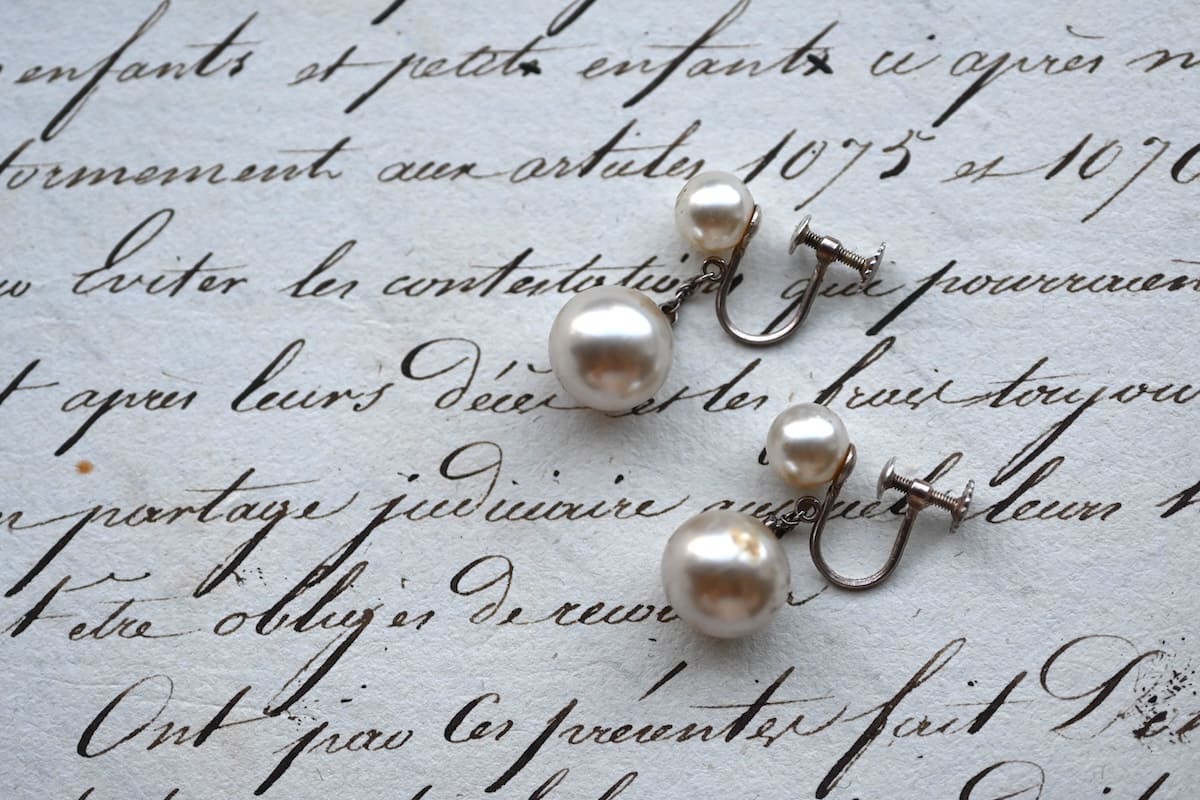 enfants et petits enfants ci après n
formement aux articles 1075 et 1076
Eviter les contestations que pourraien
t après leurs Décès et les frais toujou
n partage judiciaire auquel leurs
t etre obliges de recou
Ont par Ces présentes fait D